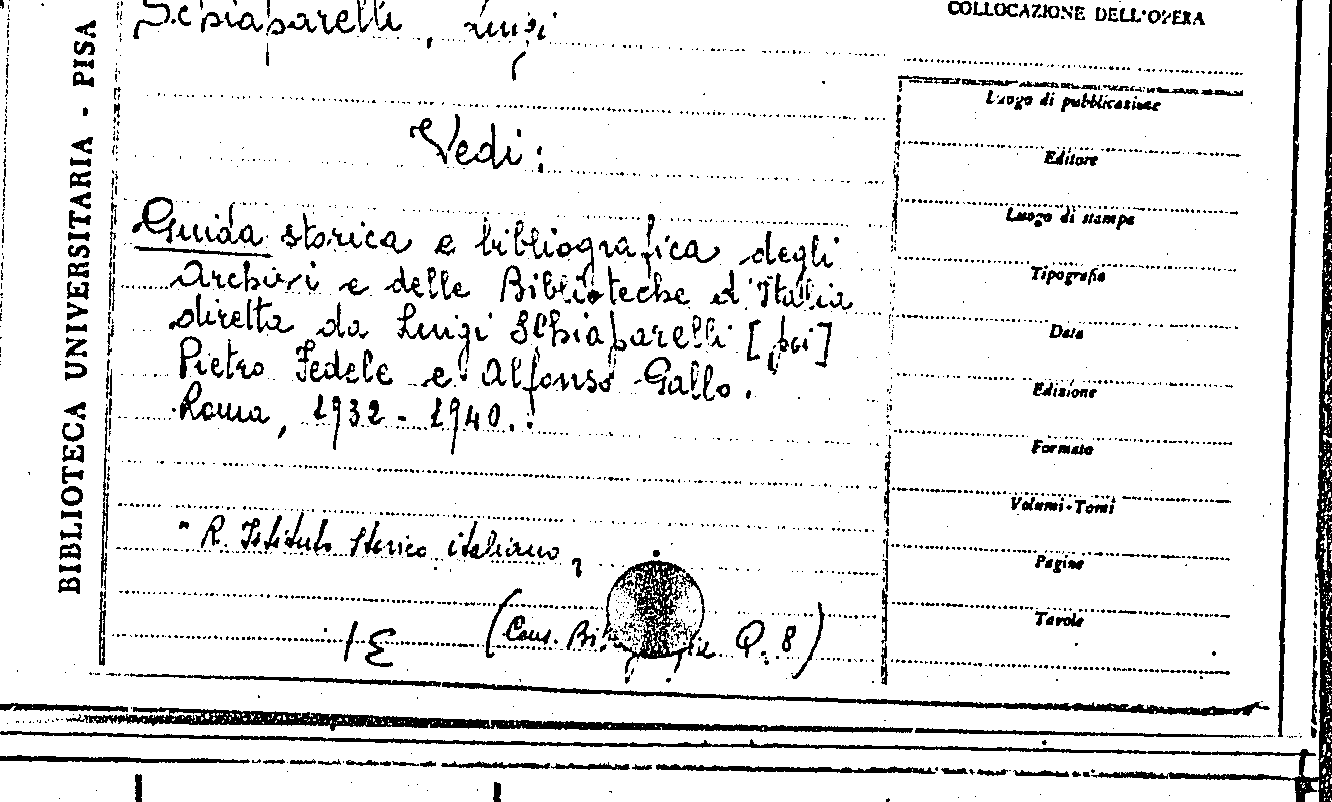 BIBLIOTECA UNIVERSITARIA - PISA
Schiaparelli, Luigi
Vedi:
Guida storica e bibliografica degli
Archivi e delle Biblioteche d'Italia
diretta da Luigi Schiaparelli [poi]
Pietro Fedele e Alfonso Gallo.
Roma, 1932-1940.
" R. Istituto Storico italiano,
(Cons. Q. 8)
COLLOCAZIONE DELL'OPERA
Luogo di pubblicazione
Editore
Luogo di stampa
Tipografia
Data
Edizione
Formato
Volumi-Tomi
Pagine
Tavole